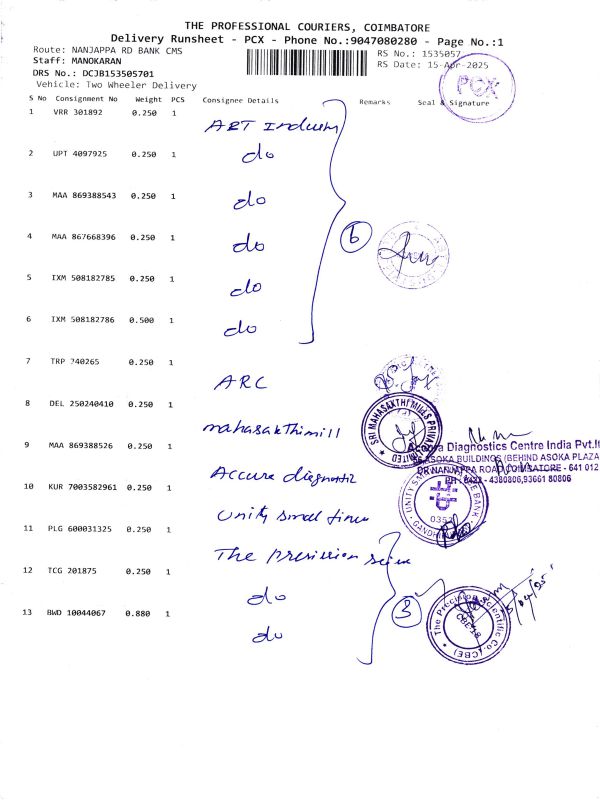 THE PROFESSIONAL COURIERS, COIMBATORE
Delivery Runsheet - PCX - Phone No.:9047080280 - Page No.:1
Route: NANJAPPA RD BANK CMS
RS No.: 1535057
Staff: MANOKARAN
RS Date: 15-Apr-2025
DRS No.: DCJB153505701
Vehicle: Two Wheeler Delivery
PCX
S No Consignment No Weight PCS Consignee Details Remarks Seal & Signature
1 VRR 301892 0.250 1
ART Industry
2 UPT 4097925 0.250 1 do
3 MAA 869388543 0.250 1 do
4 MAA 867668396 0.250 1 do
6
5 IXM 508182785 0.250 1 do
6 IXM 508182786 0.500 1 do
7 TRP 740265 0.250 1
ARC
8 DEL 250240410 0.250 1
mahasakthimill
SRI MAHASAKTHI MILLS PRIVATE LIMITED
9 MAA 869388526 0.250 1
Diagnostics Centre India Pvt.
ASOKA BUILDINGS (BEHIND ASOKA PLAZA
DR NANJAPPA ROAD, COIMBATORE - 641 012
PH : 0422 - 4380806,93661 80806
Accura diagnostic
10 KUR 7003582961 0.250 1
Unity small finan
UNITY BANK
11 PLG 600031325 0.250 1
The precission scien
12 TCG 201875 0.250 1
do
3
13 BWD 10044067 0.880 1
do
The Precision Scientific Co., (CBE)
CBE-18